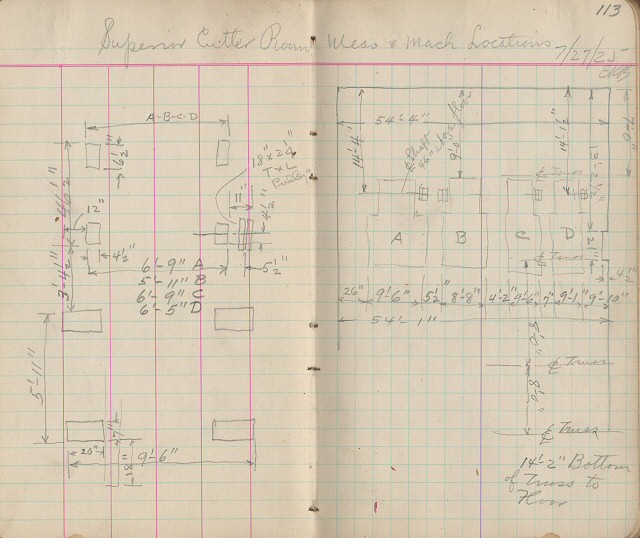 113
Superior Cutter Room Meas & Mach Locations
7/27/25
A-B-C-D
6½"
18" x 24"
T x L
Pulley
12"
11"
4½"
4½"
5½"
6'-9" A
5'-11" B
6'-9" C
6'-5" D
5'-11"
20"
7"
18"
9'-6"
54'-4"
14'-4"
℄ Shaft
46" above floor
9'-0"
14'-1½"
13'-2½"
7'-0"
℄ Truss
A
B
C
D
℄ Truss
21"
4½"
26"
9'-6"
5½"
8'-8"
4'-2"
9'-6"
7"
9'-1"
9'-10"
54'-1"
8'-0"
℄ Truss
8'-0"
℄ Truss
14'-2" Bottom
of Truss to
Floor